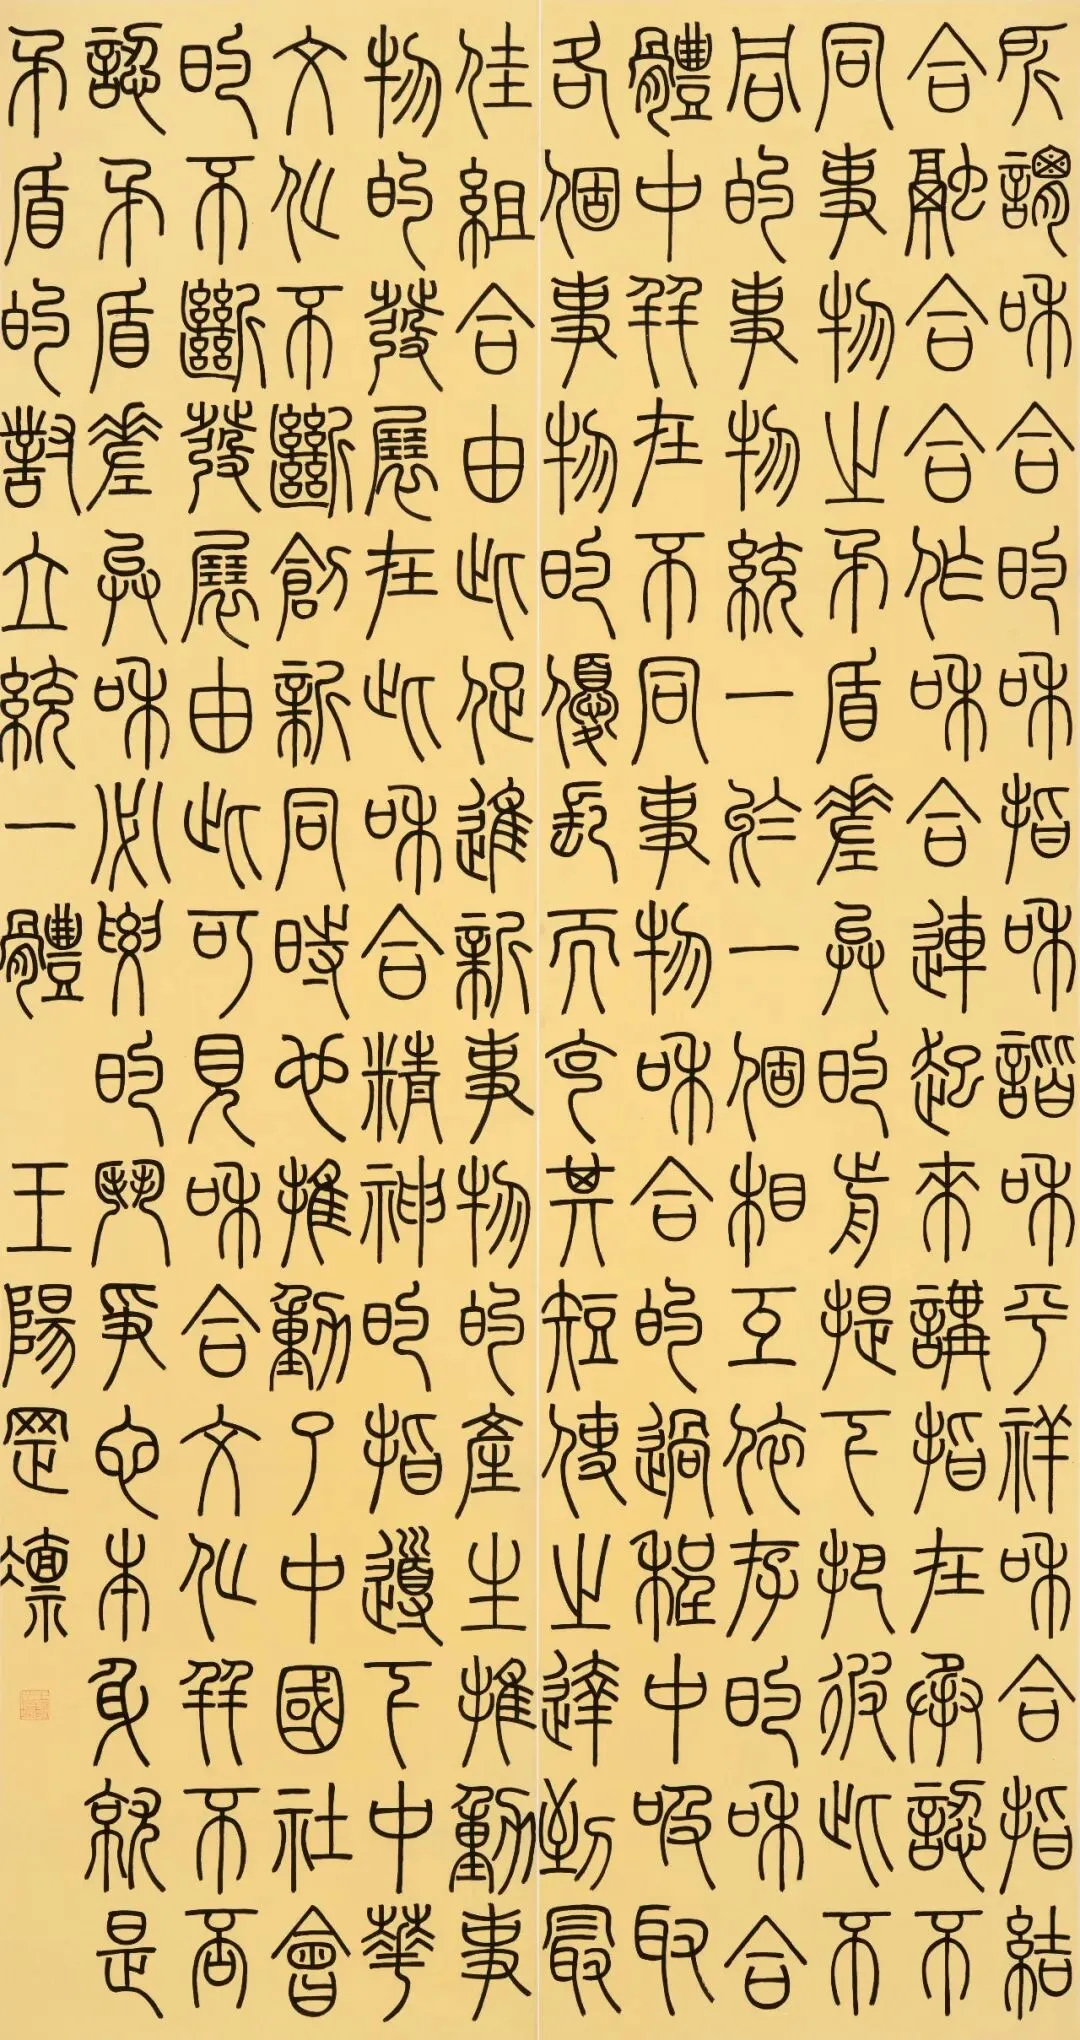 所謂和合的和指和諧和平祥和合指結
合融合合作和合連起來講指在承認不
同事物之矛盾差異的前提下把彼此不
同的事物統一於一個相互依存的和合
體中并在不同事物和合的過程中吸取
各個事物的優長而克其短使之達到最
佳組合由此促進新事物的產生推動事
物的發展在此和合精神的指導下中華
文化不斷創新同時也推動了中國社會
的不斷發展由此可見和合文化并不否
認矛盾差異和必要的鬥爭它本身就是
矛盾的對立統一體 王陽罡